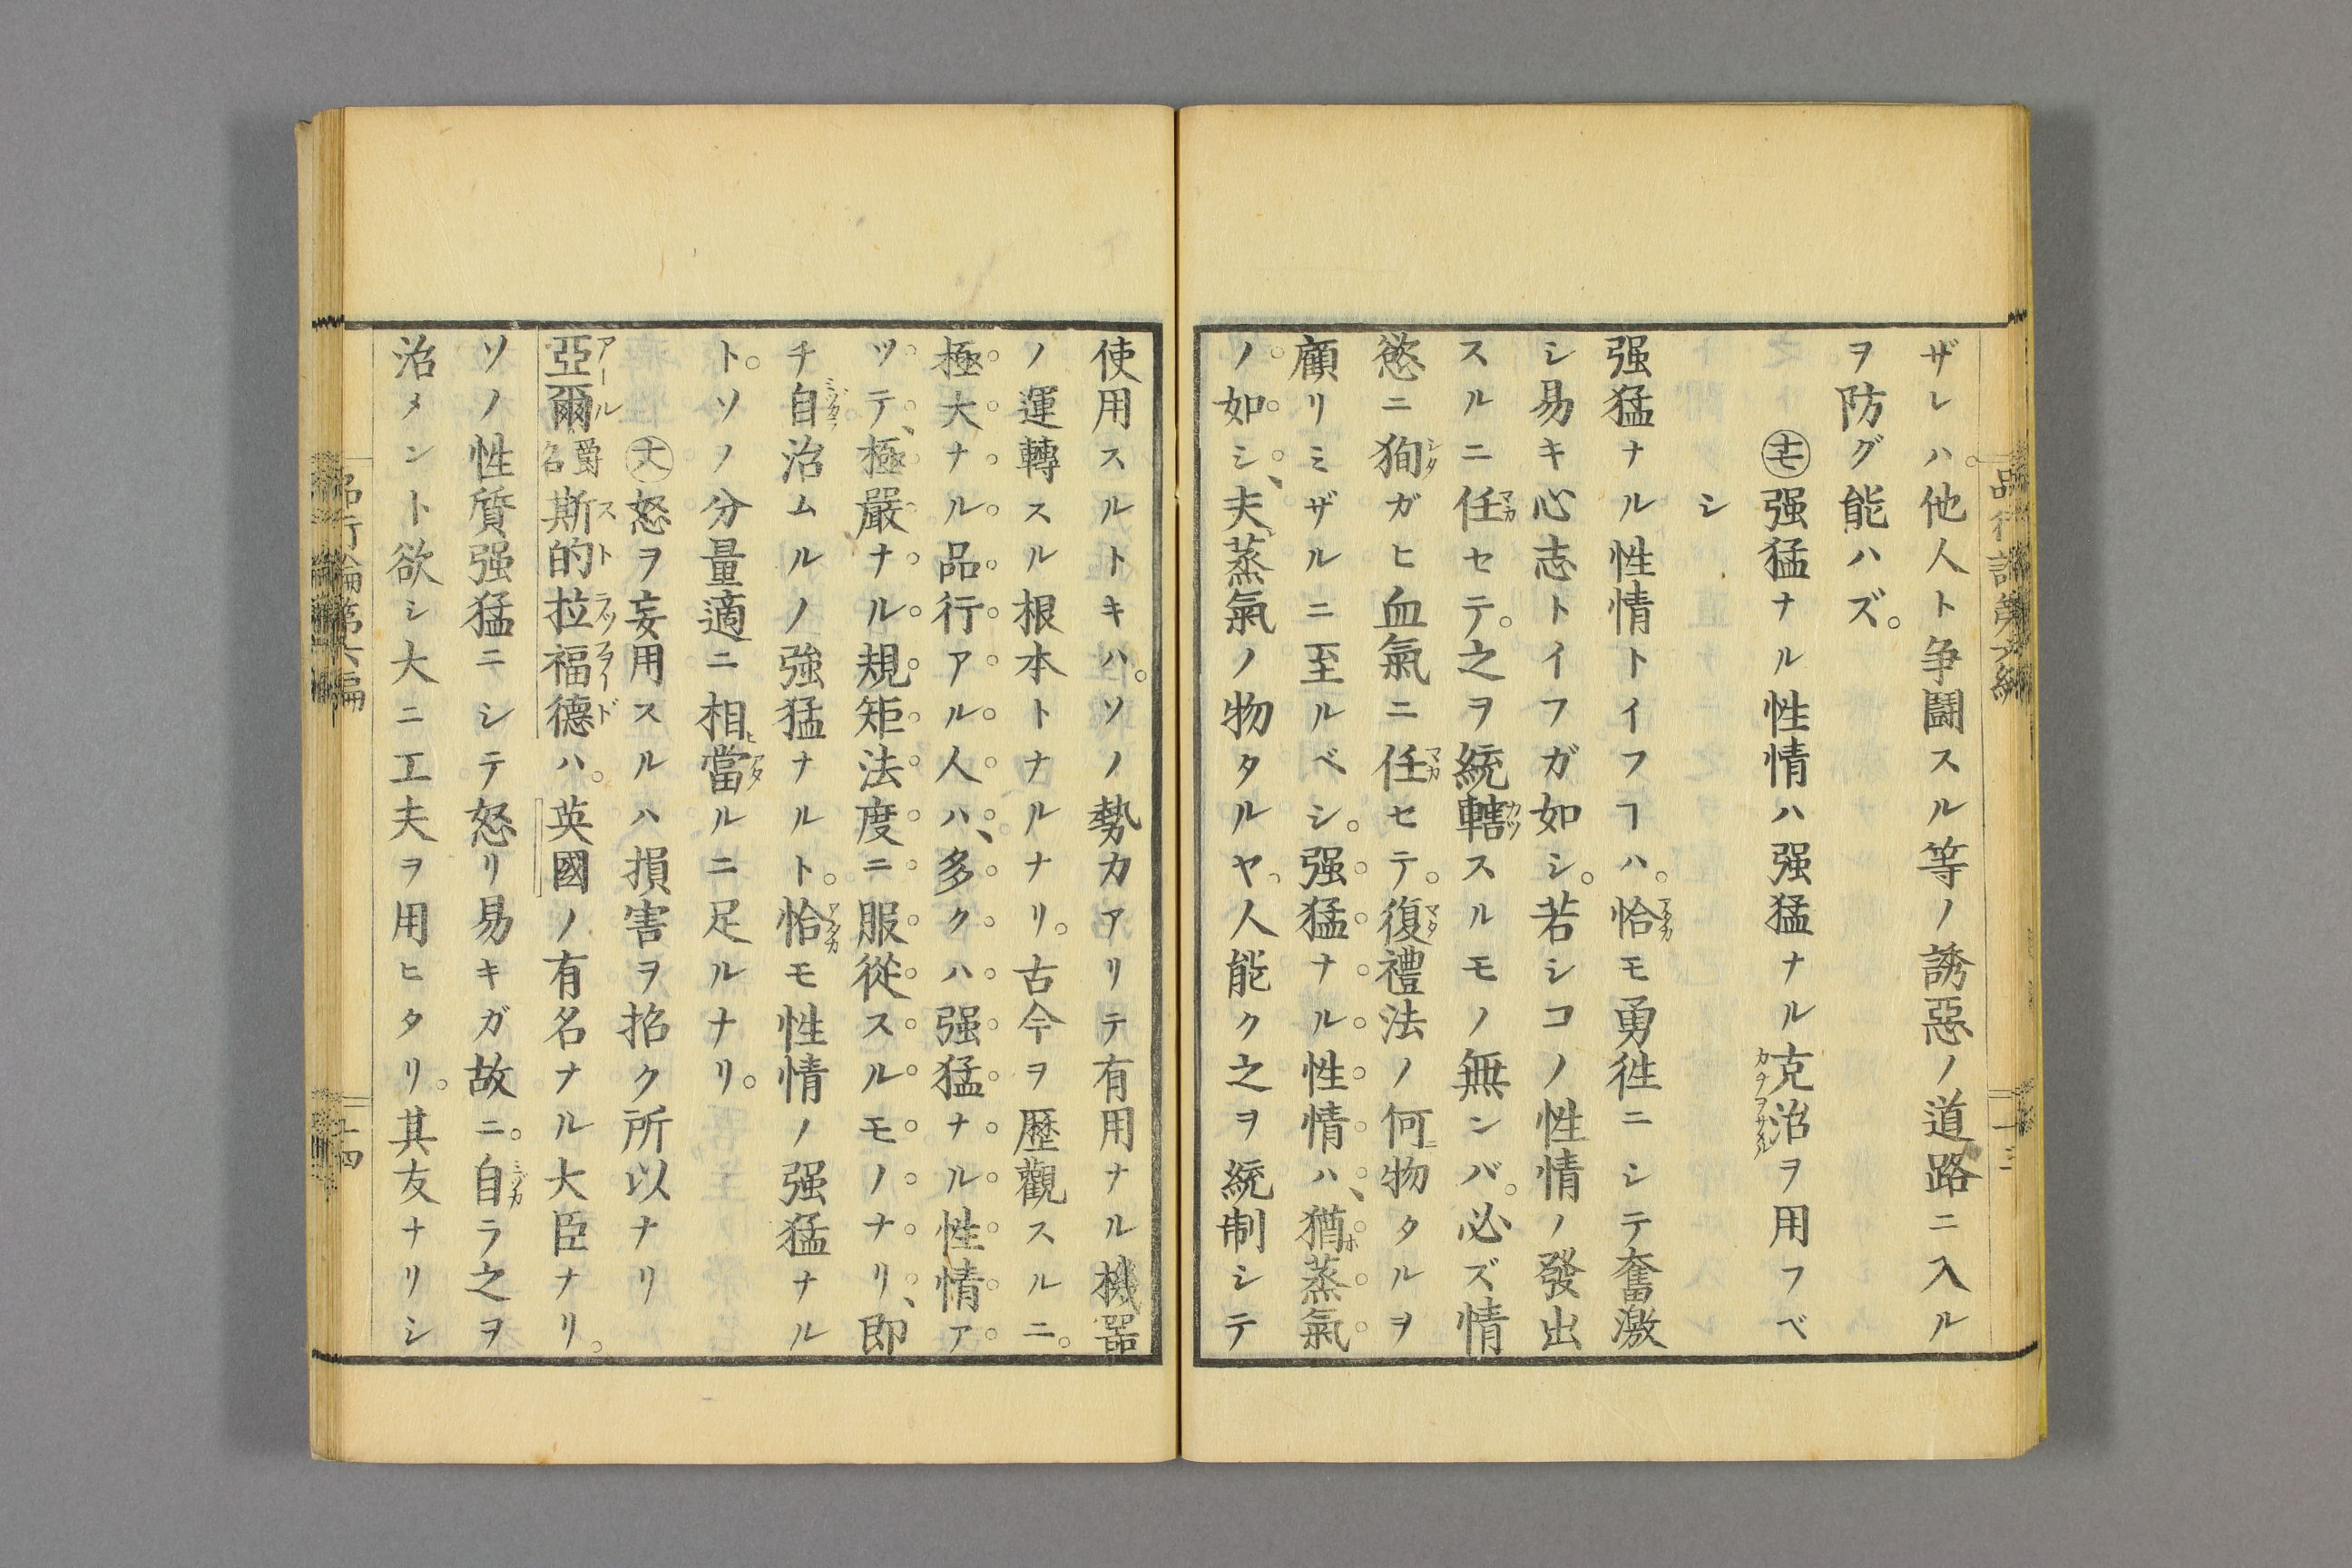 ザレハ。他人ト争鬪スル等ノ誘惡ノ道路ニ入ル
ヲ防グ能ハズ。
强猛ナル性情ハ强猛ナル克治ヲ用フベ
シ
强猛ナル性情トイフヿハ。恰モ勇徃ニシテ奮激
シ易キ心志トイフガ如シ。若シコノ性情ノ發出
スルニ任セテ。之ヲ統轄スルモノ無ンバ。必ズ情
慾ニ狥ガヒ血氣ニ任セテ。復禮法ノ何物タルヲ
顧リミザルニ至ルベシ。强猛ナル性情ハ、猶蒸氣
ノ如シ、夫蒸氣ノ物タルヤ。人能ク之ヲ統制シテ
使用スルトキハ。ソノ勢力アリテ有用ナル機器
ノ運轉スル根本トナルナリ。古今ヲ歷觀スルニ。
極大ナル品行アル人ハ、多クハ强猛ナル性情ア
ツテ、極嚴ナル規矩法度ニ服從スルモノナリ、即
チ自治ムルノ強猛ナルト。恰モ性情ノ强猛ナル
ト。ソノ分量適ニ相當ルニ足ルナリ。
怒ヲ妄用スルハ損害ヲ招ク所以ナリ
亞爾爵名斯的拉福德ハ。英國ノ有名ナル大臣ナリ。
ソノ性質强猛ニシテ怒リ易キガ故ニ。自ラ之ヲ
治メント欲シ大ニ工夫ヲ用ヒタリ。其友ナリシ
品行論第六編
十四